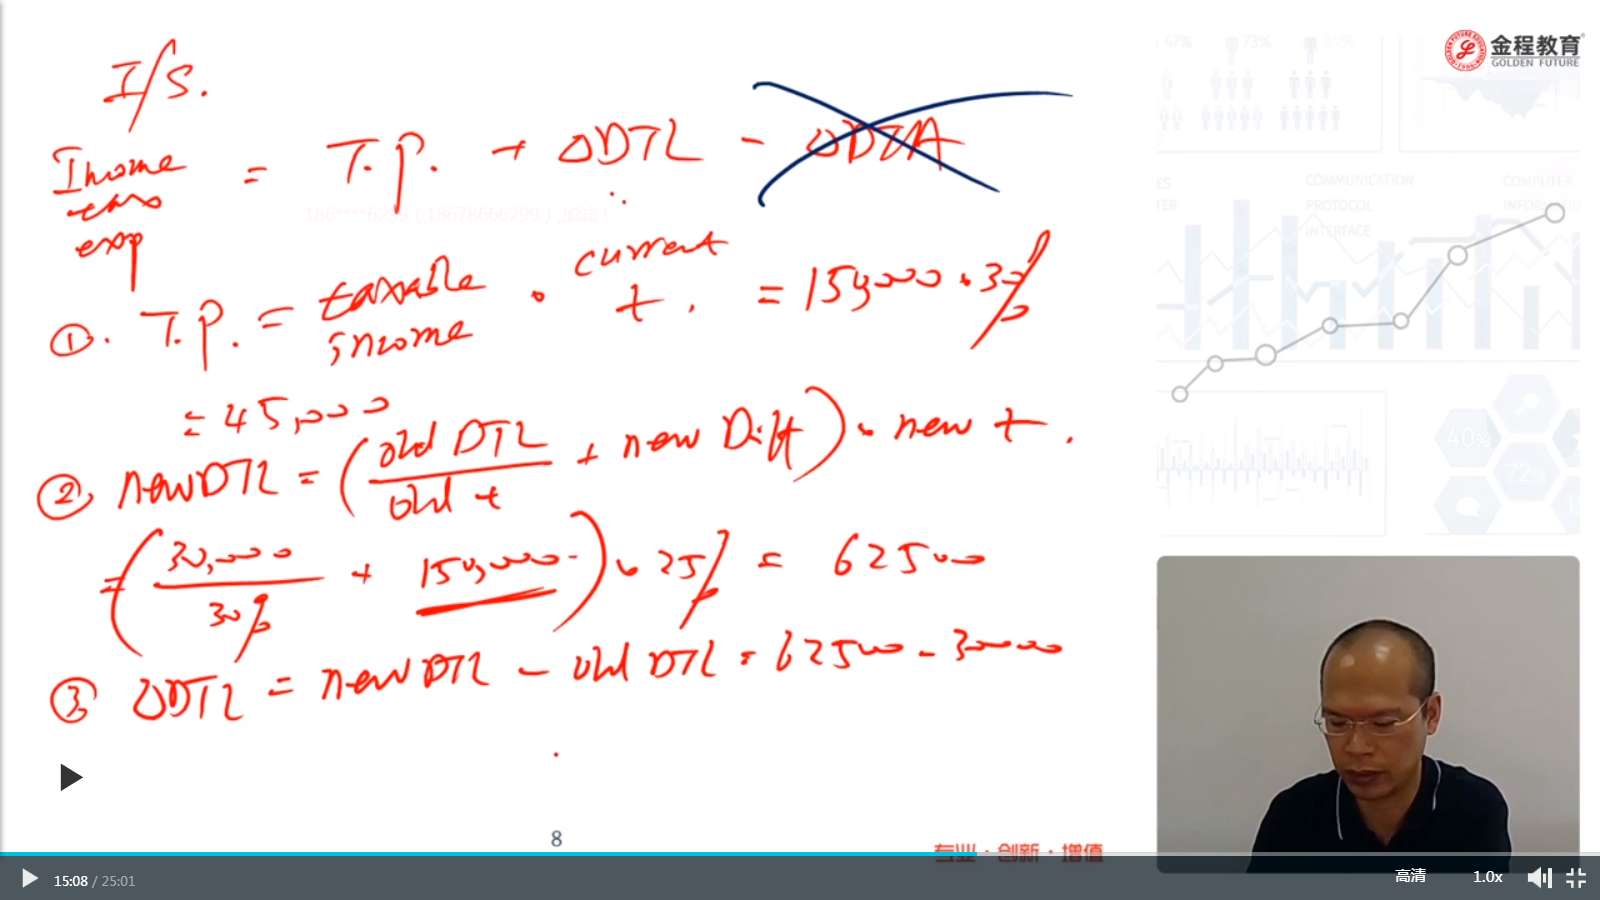 I/S.
金程教育
GOLDEN FUTURE
Income = T.P. + ΔDTL - ΔDTA
tax
exp
① . T.P. = taxable income · current t. = 150,000 · 30%
= 45,000
② newDTL = (old DTL / old t + new Diff) · new t .
= (30,000 / 30% + 150,000) · 25% = 62500
③ ΔDTL = new DTL - old DTL = 62500 - 30000
8
专业·创新·增值
15:08 / 25:01
高清
1.0x
COMMUNICATION
PROTOCOL
INTERFACE
COMPUTER
40%
72%
73%